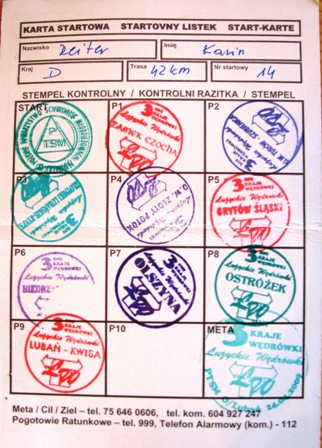 KARTA STARTOWA STARTOVNY LISTEK START-KARTE
Nazwisko Reiter Imię Karin
Kraj D Trasa 42km Nr startowy 14
STEMPEL KONTROLNY / KONTROLNI RAZITKA / STEMPEL
START P1 P2
PTSM
3 KRAJE WĘDRÓWKI
ZAMEK CZOCHA
P3 P4 P5
3 KRAJE WĘDRÓWKI
Łużyckie Wędrówki
GRYFÓW ŚLĄSKI
P6 P7 P8
3 KRAJE WĘDRÓWKI
Łużyckie Wędrówki
OLSZYNA
3 KRAJE WĘDRÓWKI
Łużyckie Wędrówki
OSTRÓŻEK
P9 P10 META
3 KRAJE WĘDRÓWKI
Łużyckie Wędrówki
LUBAŃ - KWISA
3 KRAJE WĘDRÓWKI
Łużyckie Wędrówki
Meta / Cil / Ziel – tel. 75 646 0606, tel. kom. 604 927 247
Pogotowie Ratunkowe – tel. 999, Telefon Alarmowy (kom.) - 112